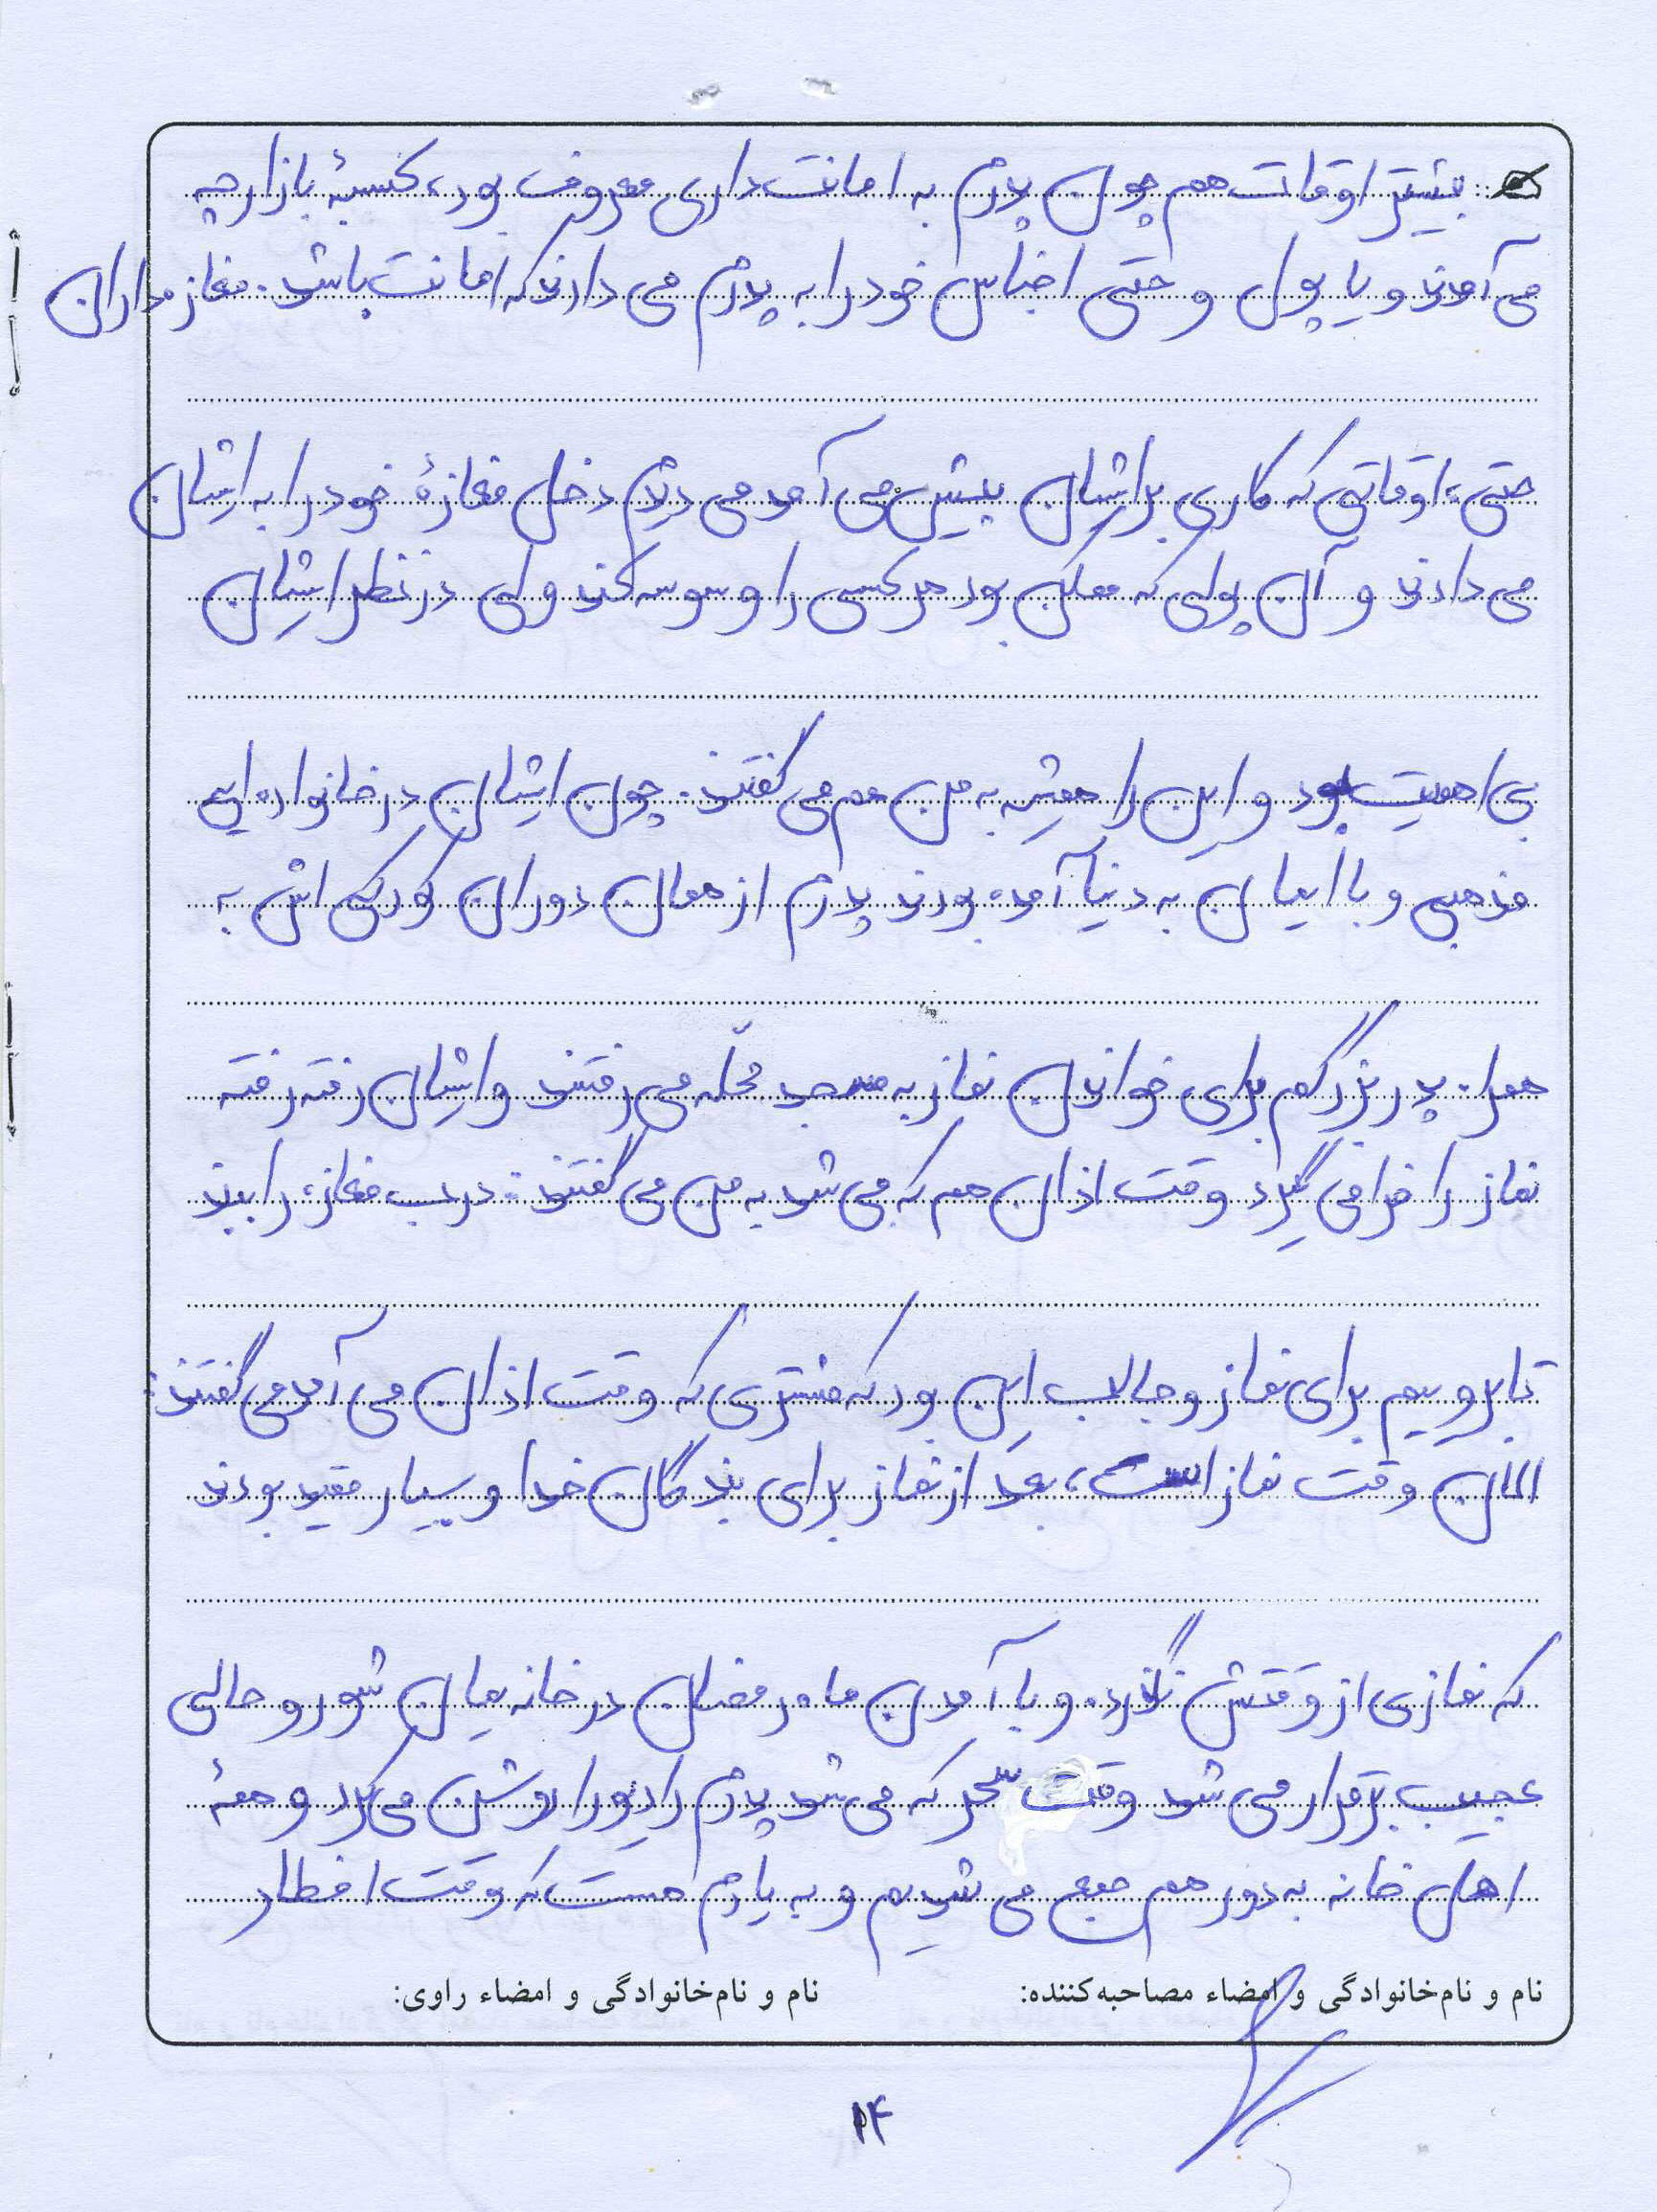 بیشتر اوقات هم چون پدرم به امانت داری معروف بود، کسبهٔ بازارچه
می آمدند و یا پول و حتی اجناس خود را به پدرم می دادند که امانت باشد. مغازه داران
حتی، اوقاتی که کاری برایشان پیش می آمد می دیدم دخل مغازهٔ خود را به ایشان
می دادند و آن پولی که ممکن بود هر کسی را وسوسه کند ولی در نظر ایشان
بی اهمیت بود و این را همیشه به من هم می گفتند. چون ایشان در خانواده ایی
مذهبی و با ایمان به دنیا آمده بودند پدرم از همان دوران کودکی اش به
همراه پدربزرگم برای خواندن نماز به مسجد محلّه می رفتند و ایشان رفته رفته
نماز را فرا می گیرد وقت اذان هم که می شد به من می گفتند: درب مغازه را ببند
تا برویم برای نماز و جالب این بود که مشتری که وقت اذان می آمد می گفتند:
الان وقت نماز است، بعد از نماز برای بندگان خدا و بسیار مقید بودند
که نمازی از وقتش نگذرد. و با آمدن ماه رمضان در خانه یمان شور و حالی
عجیب برقرار می شد وقت سحر که می شد پدرم رادیو را روشن می کرد و همهٔ
اهل خانه به دور هم جمع می شدیم و به یادم هست که وقت افطار
نام و نام‌خانوادگی و امضاء مصاحبه‌کننده: نام و نام‌خانوادگی و امضاء راوی:
۱۴